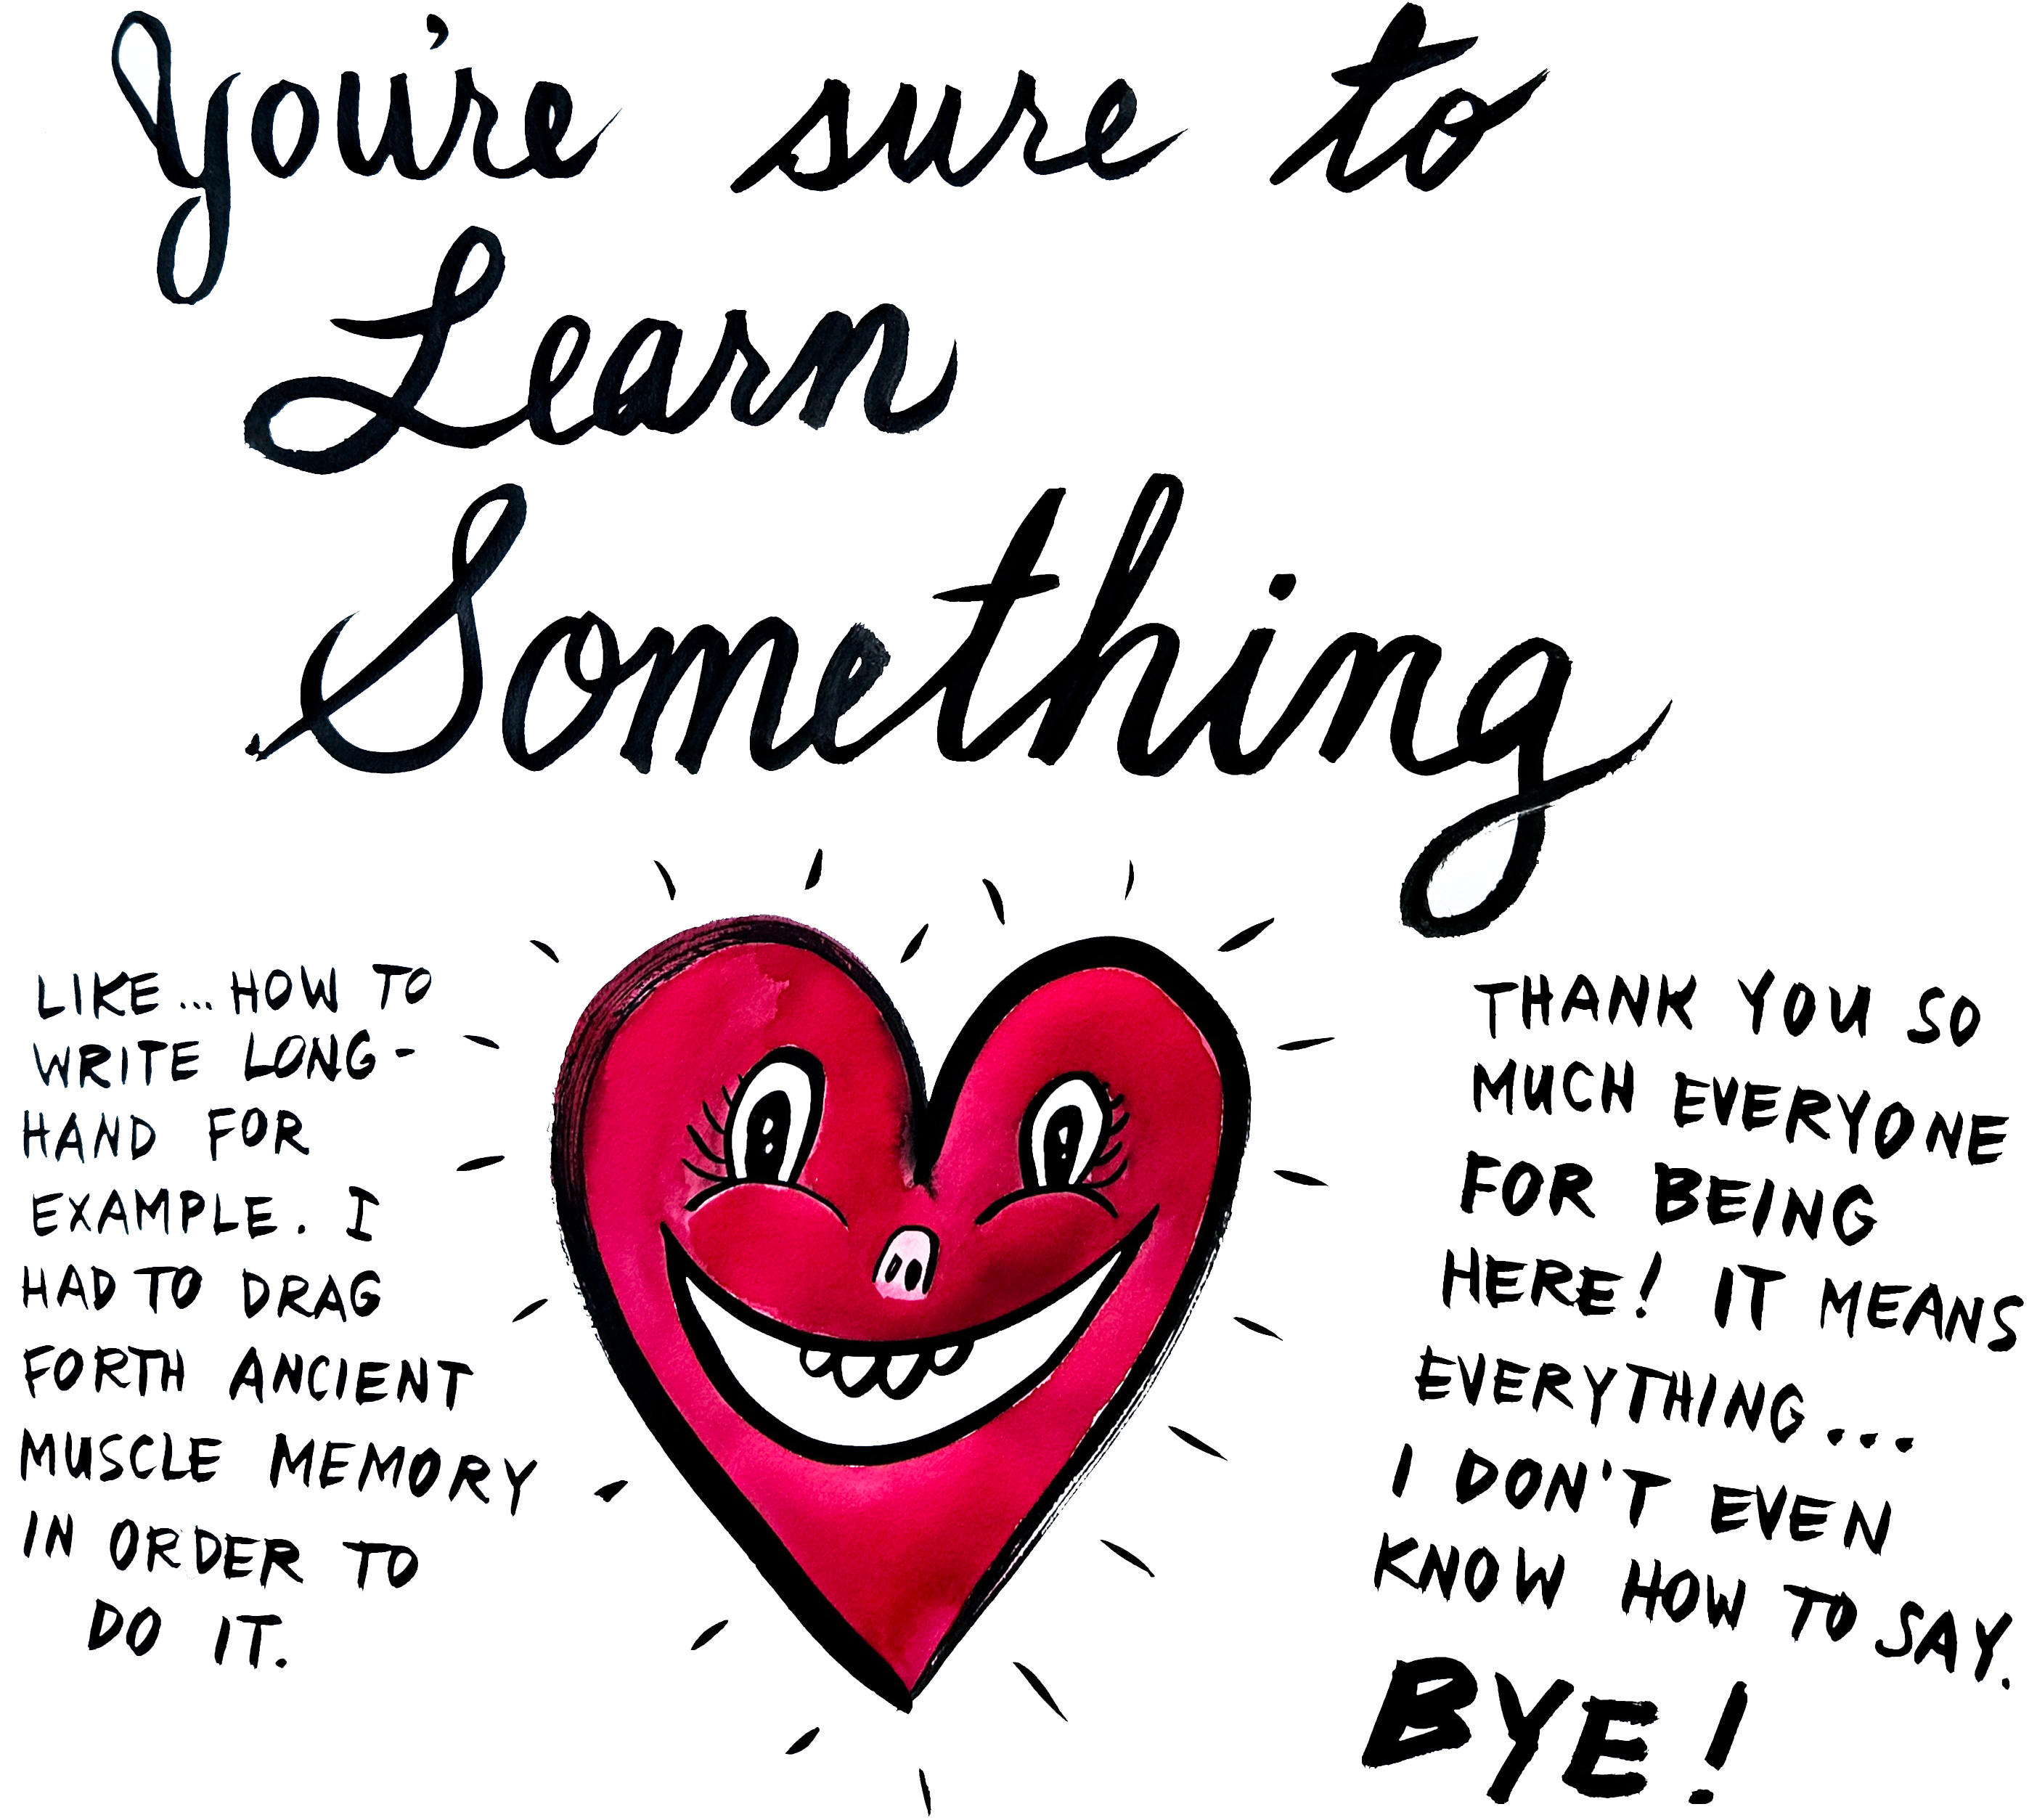 You're sure to
Learn
Something
LIKE... HOW TO
WRITE LONG-
HAND FOR
EXAMPLE. I
HAD TO DRAG
FORTH ANCIENT
MUSCLE MEMORY
IN ORDER TO
DO IT.
THANK YOU SO
MUCH EVERYONE
FOR BEING
HERE! IT MEANS
EVERYTHING...
I DON'T EVEN
KNOW HOW TO SAY.
BYE!